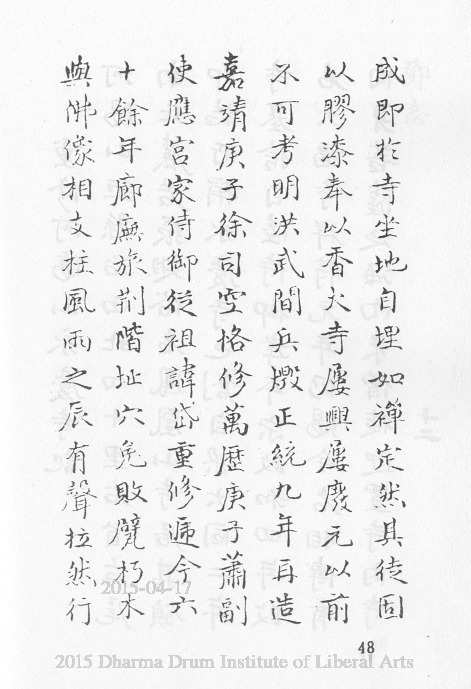 成即於寺坐地自埋如禪定然其徒固
以膠漆奉以香火寺屢興屢廢元以前
不可考明洪武間兵燬正統九年再造
嘉靖庚子徐司空恪修萬歷庚子蕭副
使應宮家侍御從祖諱岱重修遞今六
十餘年廊廡旅荆階址穴兔敗甓朽木
與佛像相支柱風雨之辰有聲拉然行
48
2015-04-17
2015 Dharma Drum Institute of Liberal Arts